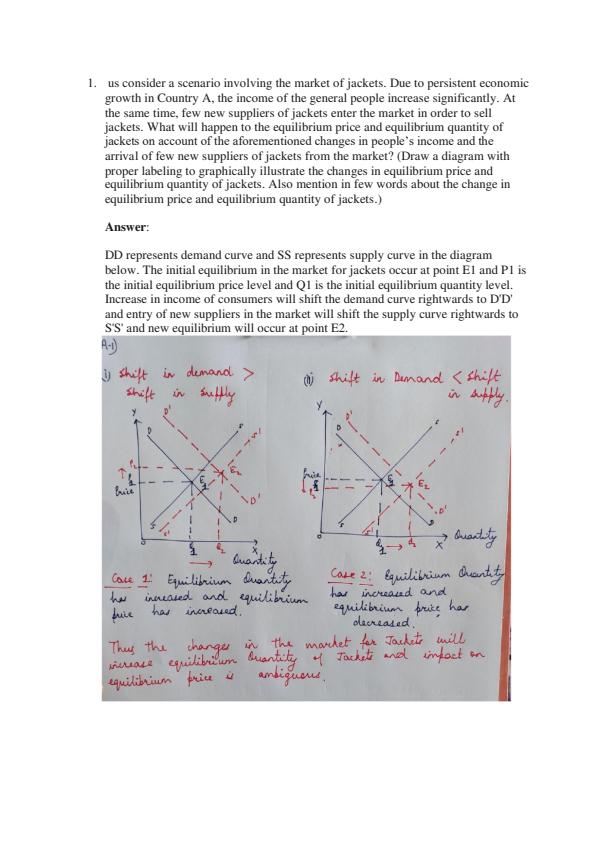 1. us consider a scenario involving the market of jackets. Due to persistent economic
growth in Country A, the income of the general people increase significantly. At
the same time, few new suppliers of jackets enter the market in order to sell
jackets. What will happen to the equilibrium price and equilibrium quantity of
jackets on account of the aforementioned changes in people's income and the
arrival of few new suppliers of jackets from the market? (Draw a diagram with
proper labeling to graphically illustrate the changes in equilibrium price and
equilibrium quantity of jackets. Also mention in few words about the change in
equilibrium price and equilibrium quantity of jackets.)
Answer:
DD represents demand curve and SS represents supply curve in the diagram
below. The initial equilibrium in the market for jackets occur at point E1 and P1 is
the initial equilibrium price level and Q1 is the initial equilibrium quantity level.
Increase in income of consumers will shift the demand curve rightwards to D'D'
and entry of new suppliers in the market will shift the supply curve rightwards to
S'S' and new equilibrium will occur at point E2.
A-1)
i) Shift in demand >
Shift in Supply
Y
D'
D
S
S'
P2
P1
Price
E1
E2
D'
D
S
S'
O
Q1
Q2
X
Quantity
Case 1: Equilibrium Quantity
has increased and equilibrium
price has increased.
(ii) Shift in Demand < Shift
in Supply.
Y
D'
D
S
S'
Price
P1
P2
E1
E2
D'
D
S
S'
O
Q1
Q2
X
Quantity
Case 2: Equilibrium Quantity
has increased and
equilibrium price has
decreased.
Thus the changes in the market for Jackets will
increase equilibrium Quantity of Jackets and impact on
equilibrium price is ambiguous.